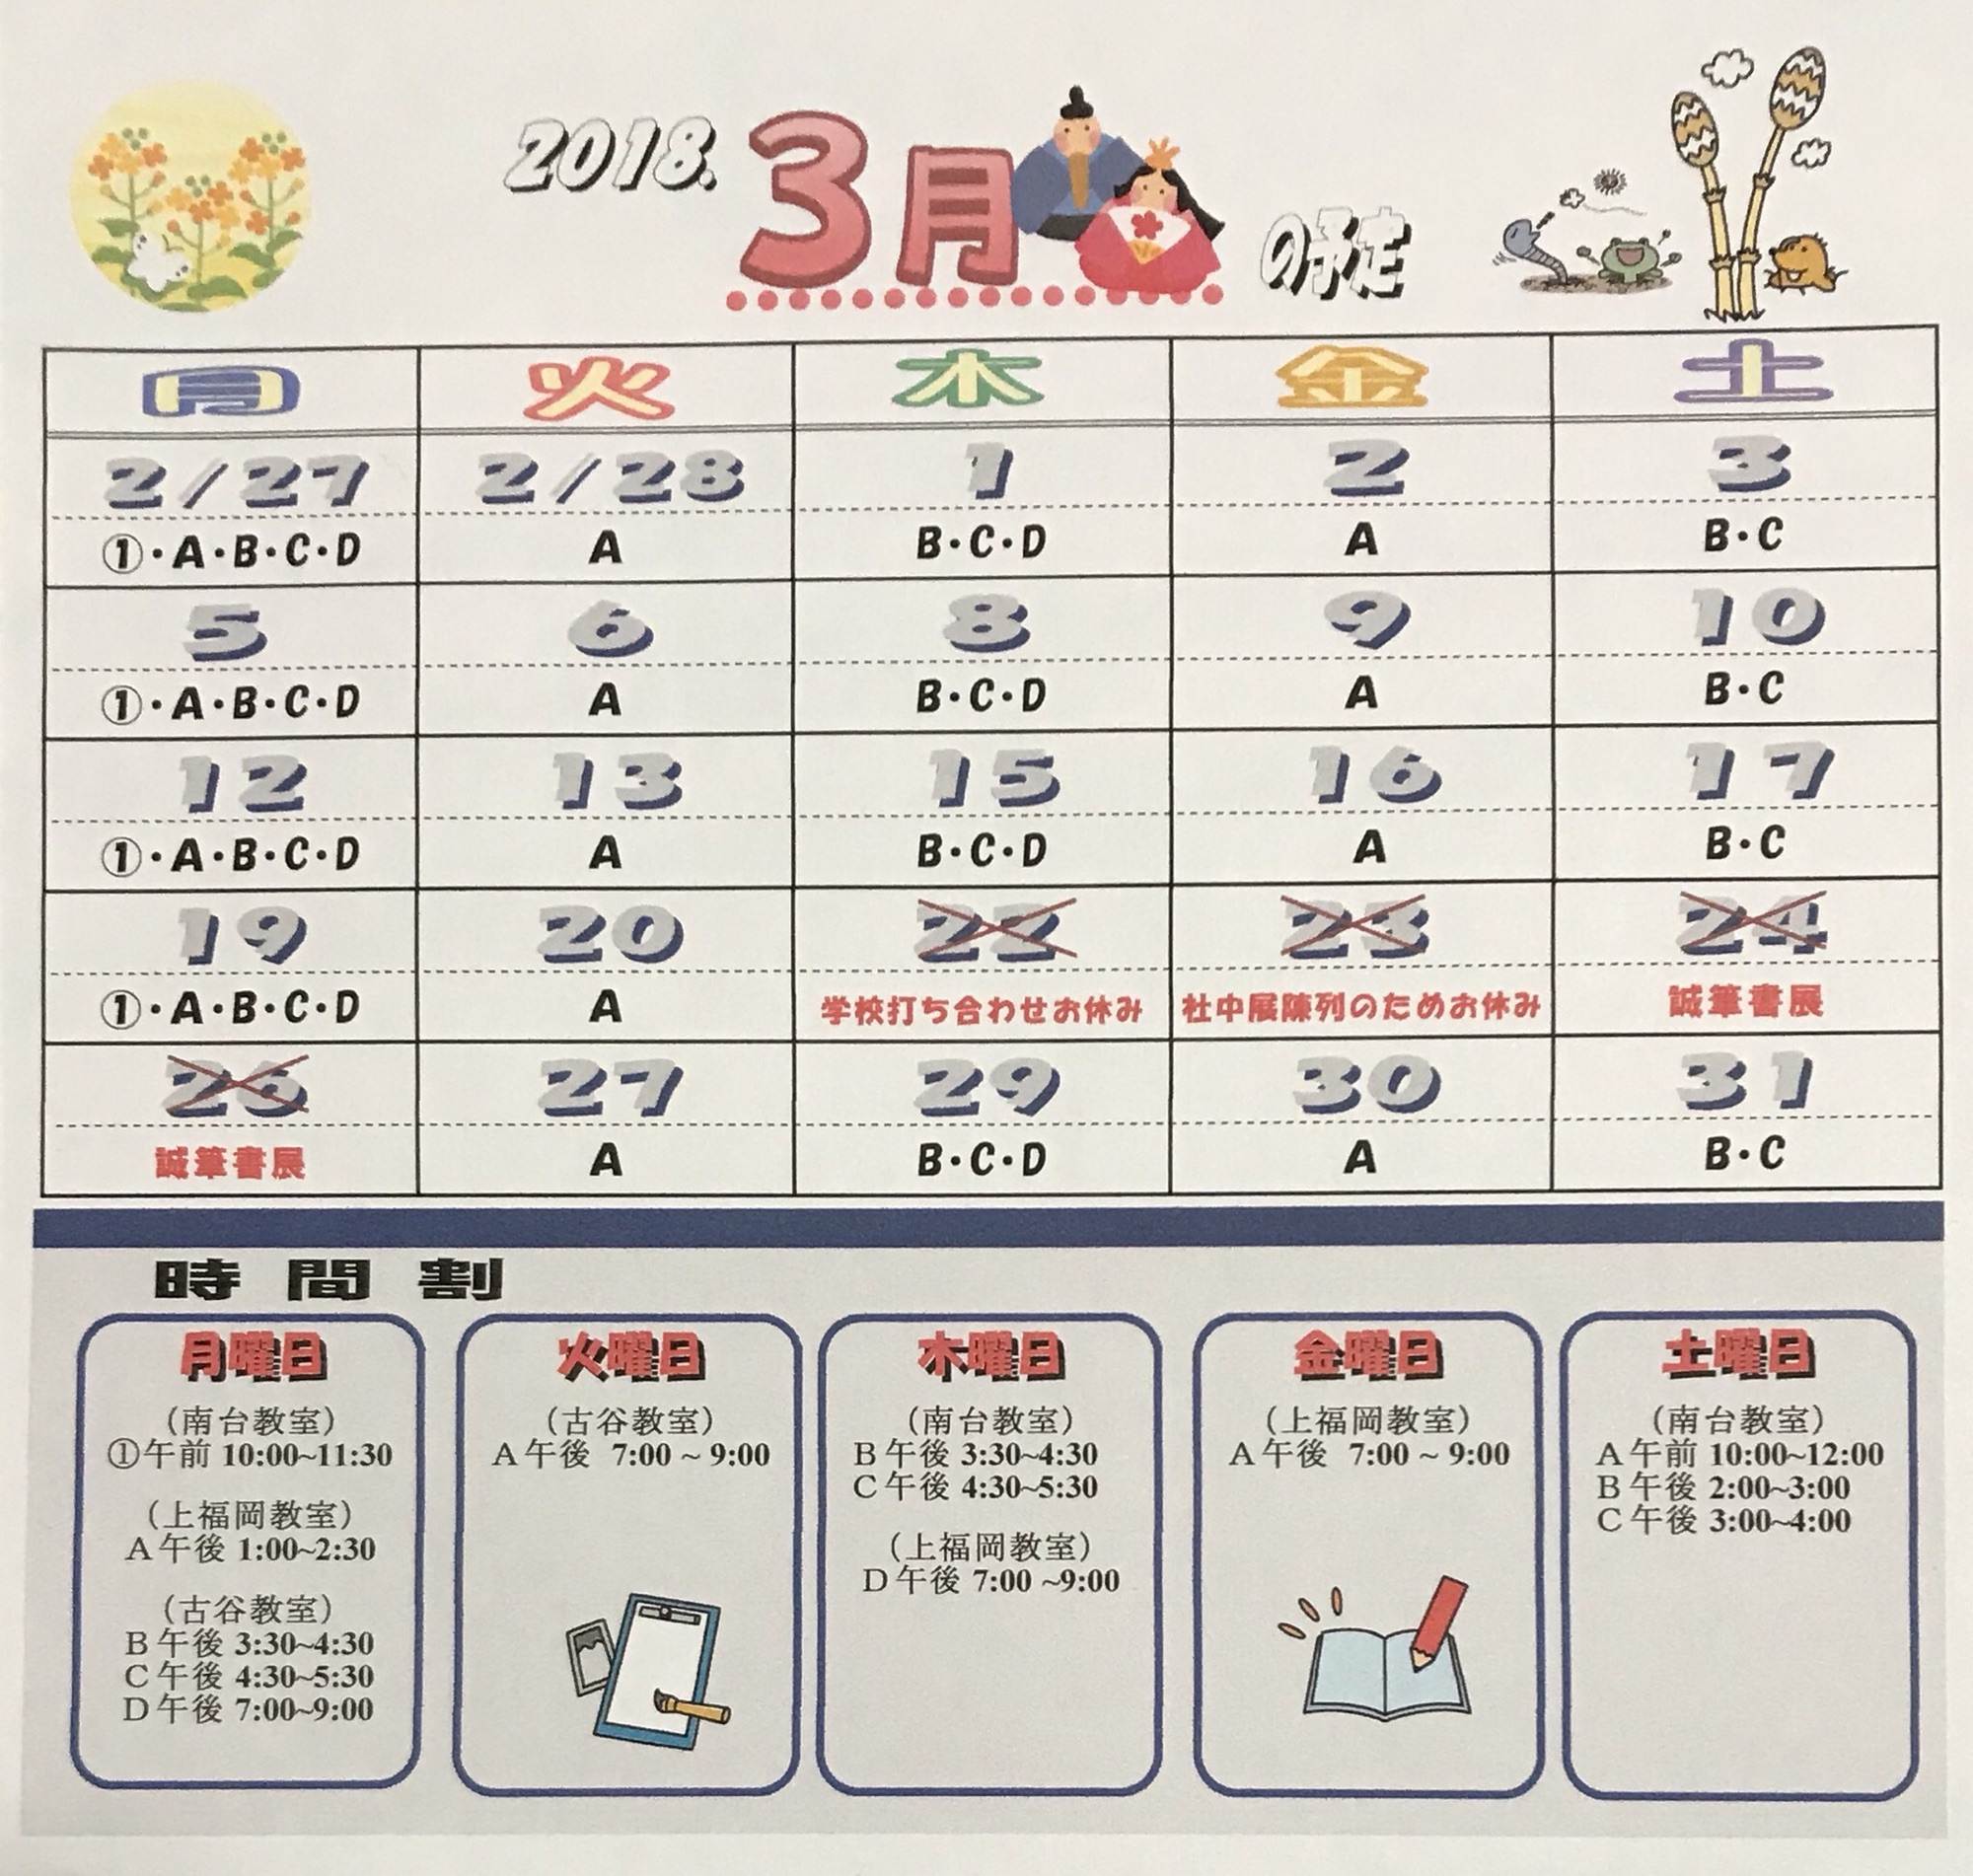 2018. 3月 の予定
月 火 木 金 土
2/27 2/28 1 2 3
①・A・B・C・D A B・C・D A B・C
5 6 8 9 10
①・A・B・C・D A B・C・D A B・C
12 13 15 16 17
①・A・B・C・D A B・C・D A B・C
19 20 22 23 24
①・A・B・C・D A 学校打ち合わせお休み 社中展陳列のためお休み 誠筆書展
26 27 29 30 31
誠筆書展 A B・C・D A B・C
時 間 割
月曜日
(南台教室)
①午前 10:00~11:30
(上福岡教室)
A午後 1:00~2:30
(古谷教室)
B午後 3:30~4:30
C午後 4:30~5:30
D午後 7:00~9:00
火曜日
(古谷教室)
A午後 7:00 ~ 9:00
木曜日
(南台教室)
B午後 3:30~4:30
C午後 4:30~5:30
(上福岡教室)
D午後 7:00 ~9:00
金曜日
(上福岡教室)
A午後 7:00 ~ 9:00
土曜日
(南台教室)
A午前 10:00~12:00
B午後 2:00~3:00
C午後 3:00~4:00